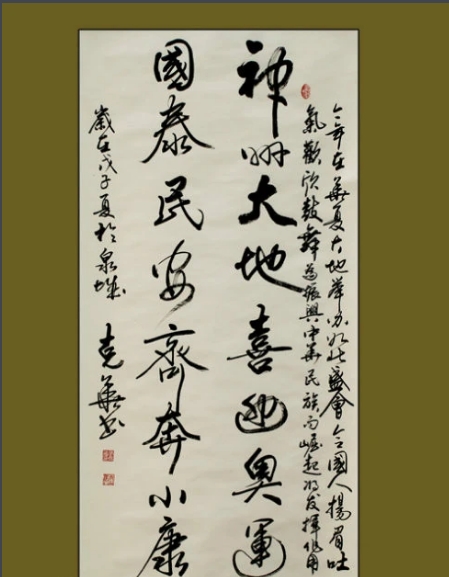 今年在華夏大地舉办如此盛會令國人揚眉吐
氣歡欣鼓舞為振興中華民族而崛起将发揮作用
神州大地喜迎奧運
國泰民安齊奔小康
歲在戊子夏於泉城
克華书